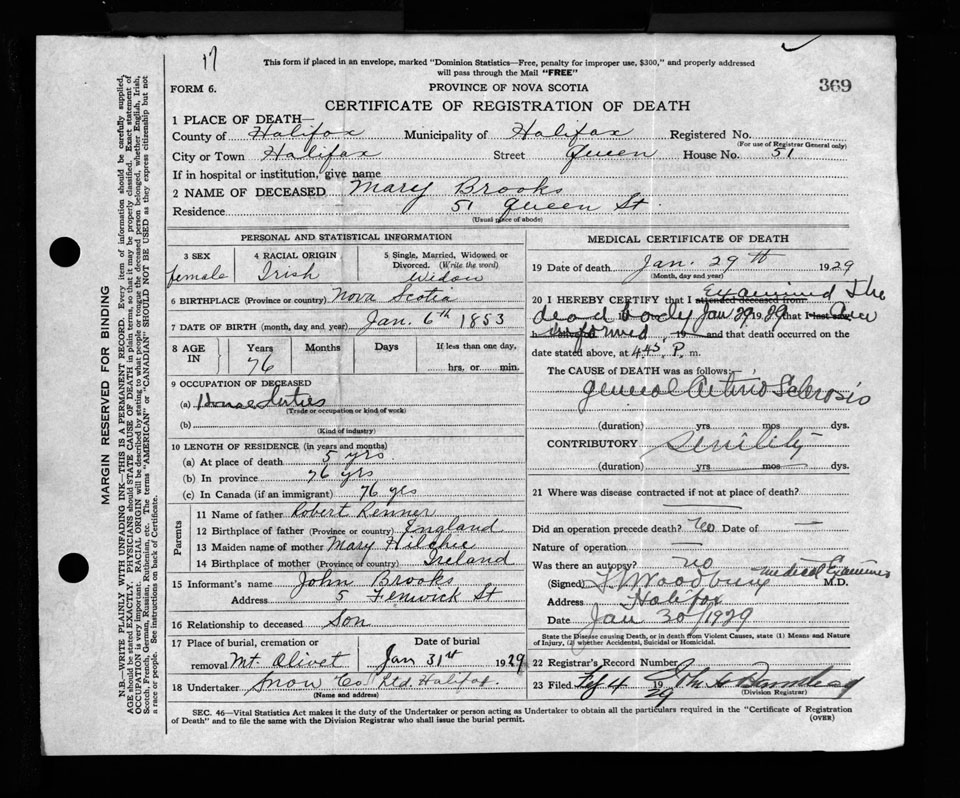 17
This form if placed in an envelope, marked "Dominion Statistics—Free, penalty for improper use, $300," and properly addressed
will pass through the Mail "FREE"
FORM 6.
PROVINCE OF NOVA SCOTIA
369
CERTIFICATE OF REGISTRATION OF DEATH
1 PLACE OF DEATH—
County of Halifax Municipality of Halifax Registered No.
(For use of Registrar General only)
City or Town Halifax Street Queen House No. 51
If in hospital or institution, give name
2 NAME OF DECEASED Mary Brooks
Residence 51 Queen St.
(Usual place of abode)
PERSONAL AND STATISTICAL INFORMATION
3 SEX
female
4 RACIAL ORIGIN
Irish
5 Single, Married, Widowed or
Divorced. (Write the word)
Widow
6 BIRTHPLACE (Province or country) Nova Scotia
7 DATE OF BIRTH (month, day, and year) Jan. 6th 1853
8 AGE
IN
Years
76
Months
Days
If less than one day,
hrs. or min.
9 OCCUPATION OF DECEASED
(a) House Duties
(Trade or occupation or kind of work)
(b)
(Kind of industry)
10 LENGTH OF RESIDENCE (in years and months)
(a) At place of death 5 yrs
(b) In province 76 yrs
(c) In Canada (if an immigrant) 76 yrs
Parents
11 Name of father Robert Renner
12 Birthplace of father (Province or country) England
13 Maiden name of mother Mary Hilchie
14 Birthplace of mother (Province or country) Ireland
15 Informant's name John Brooks
Address 5 Fenwick St
16 Relationship to deceased Son
17 Place of burial, cremation or
removal Mt. Olivet
Date of burial
Jan 31st 1929
18 Undertaker Snow Co. Ltd. Halifax.
(Name and address)
MEDICAL CERTIFICATE OF DEATH
19 Date of death Jan. 29th 1929
(Month, day and year)
20 I HEREBY CERTIFY that I attended deceased from Examined the
dead body Jan 29 1929 that I last saw
h informed, 19 and that death occurred on
date stated above, at 4.45 P. m.
The CAUSE of DEATH was as follows:
General Arterio Sclerosis
(duration) yrs mos dys.
CONTRIBUTORY Senility
(duration) yrs mos dys.
21 Where was disease contracted if not at place of death?
Did an operation precede death? No Date of —
Nature of operation —
Was there an autopsy? no
(Signed) Woodbury Medical Examiner M.D.
Address Halifax
Date Jan 30/1929
State the Disease causing Death, or in death from Violent Causes, state (1) Means and Nature
of Injury, (2) whether Accidental, Suicidal or Homicidal.
22 Registrar's Record Number
23 Filed Feb 4 1929
(Division Registrar)
SEC. 46—Vital Statistics Act makes it the duty of the Undertaker or person acting as Undertaker to obtain all the particulars required in the "Certificate of Registration
of Death" and to file the same with the Division Registrar who shall issue the burial permit.
(OVER)
MARGIN RESERVED FOR BINDING
N.B.—WRITE PLAINLY WITH UNFADING INK—THIS IS A PERMANENT RECORD. Every item of information should be carefully supplied,
AGE should be stated EXACTLY. PHYSICIANS should STATE CAUSE OF DEATH in plain terms, so that it may be properly classified. Exact statement of
OCCUPATION is very important. RACIAL ORIGIN will be described by stating to what people or tongue the deceased person belonged, whether English, Irish,
Scotch, French, German, Russian, Ruthenian, etc. The terms "AMERICAN" or "CANADIAN" SHOULD NOT BE USED as they express citizenship but not
a race or people. See instructions on back of Certificate.